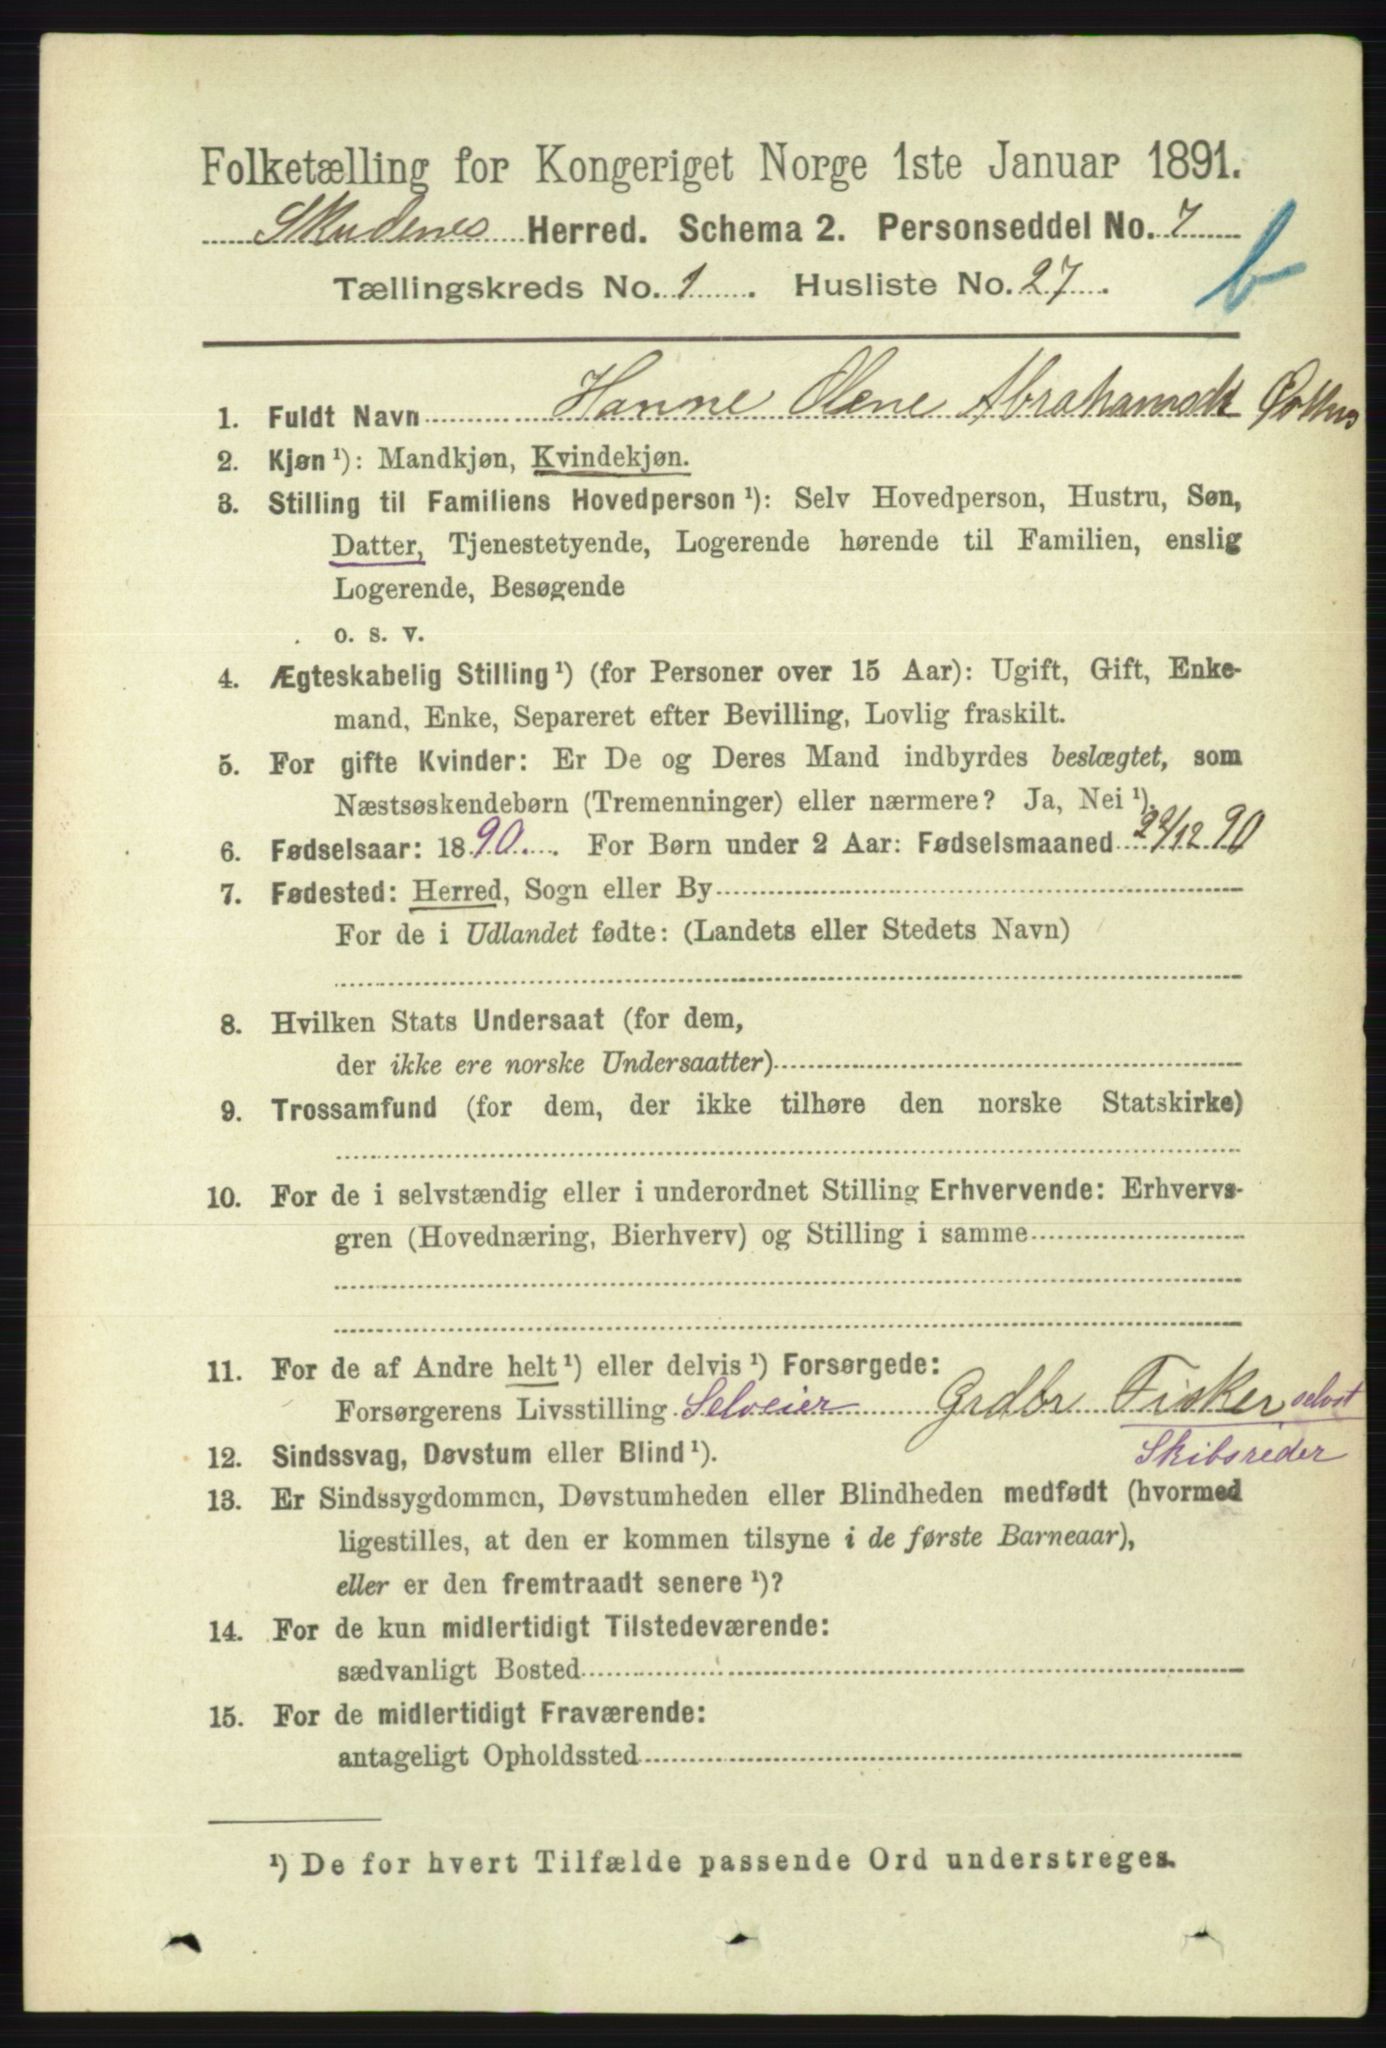 Folketælling for Kongeriget Norge 1ste Januar 1891.
Skudenes Herred. Schema 2. Personseddel No. 7
b
Tællingskreds No. 1. Husliste No. 27.
1. Fuldt Navn Hanne Olene Abrahamsdt
2. Kjøn ¹): Mandkjøn, Kvindekjøn.
3. Stilling til Familiens Hovedperson ¹): Selv Hovedperson, Hustru, Søn,
Datter, Tjenestetyende, Logerende hørende til Familien, enslig
Logerende, Besøgende
o. s. v.
4. Ægteskabelig Stilling ¹) (for Personer over 15 Aar): Ugift, Gift, Enke-
mand, Enke, Separeret efter Bevilling, Lovlig fraskilt.
5. For gifte Kvinder: Er De og Deres Mand indbyrdes beslægtet, som
Næstsøskendebørn (Tremenninger) eller nærmere? Ja, Nei ¹).
6. Fødselsaar: 1890. For Børn under 2 Aar: Fødselsmaaned 29/12 90
7. Fødested: Herred, Sogn eller By
For de i Udlandet fødte: (Landets eller Stedets Navn)
8. Hvilken Stats Undersaat (for dem,
der ikke ere norske Undersaatter)
9. Trossamfund (for dem, der ikke tilhøre den norske Statskirke)
10. For de i selvstændig eller i underordnet Stilling Erhvervende: Erhvervs-
gren (Hovednæring, Bierhverv) og Stilling i samme
11. For de af Andre helt ¹) eller delvis ¹) Forsørgede:
Forsørgerens Livsstilling Selveier Grdbr Fisker selvst
Skibsreder
12. Sindssvag, Døvstum eller Blind ¹).
13. Er Sindssygdommen, Døvstumheden eller Blindheden medfødt (hvormed
ligestilles, at den er kommen tilsyne i de første Barneaar),
eller er den fremtraadt senere ¹)?
14. For de kun midlertidigt Tilstedeværende:
sædvanligt Bosted
15. For de midlertidigt Fraværende:
antageligt Opholdssted
¹) De for hvert Tilfælde passende Ord understreges.